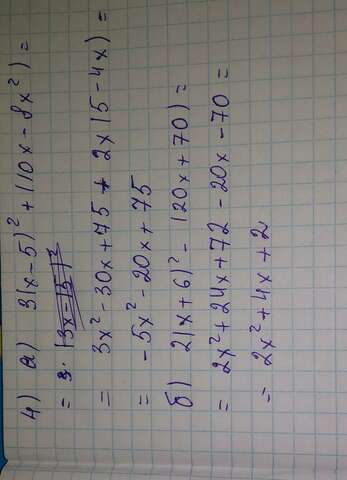 4) а) 3(x-5)² + (10x - 8x²) =
= 3x² - 30x + 75 + 2x(5 - 4x) =
= -5x² - 20x + 75
б) 2(x+6)² - (20x + 70) =
= 2x² + 24x + 72 - 20x - 70 =
= 2x² + 4x + 2